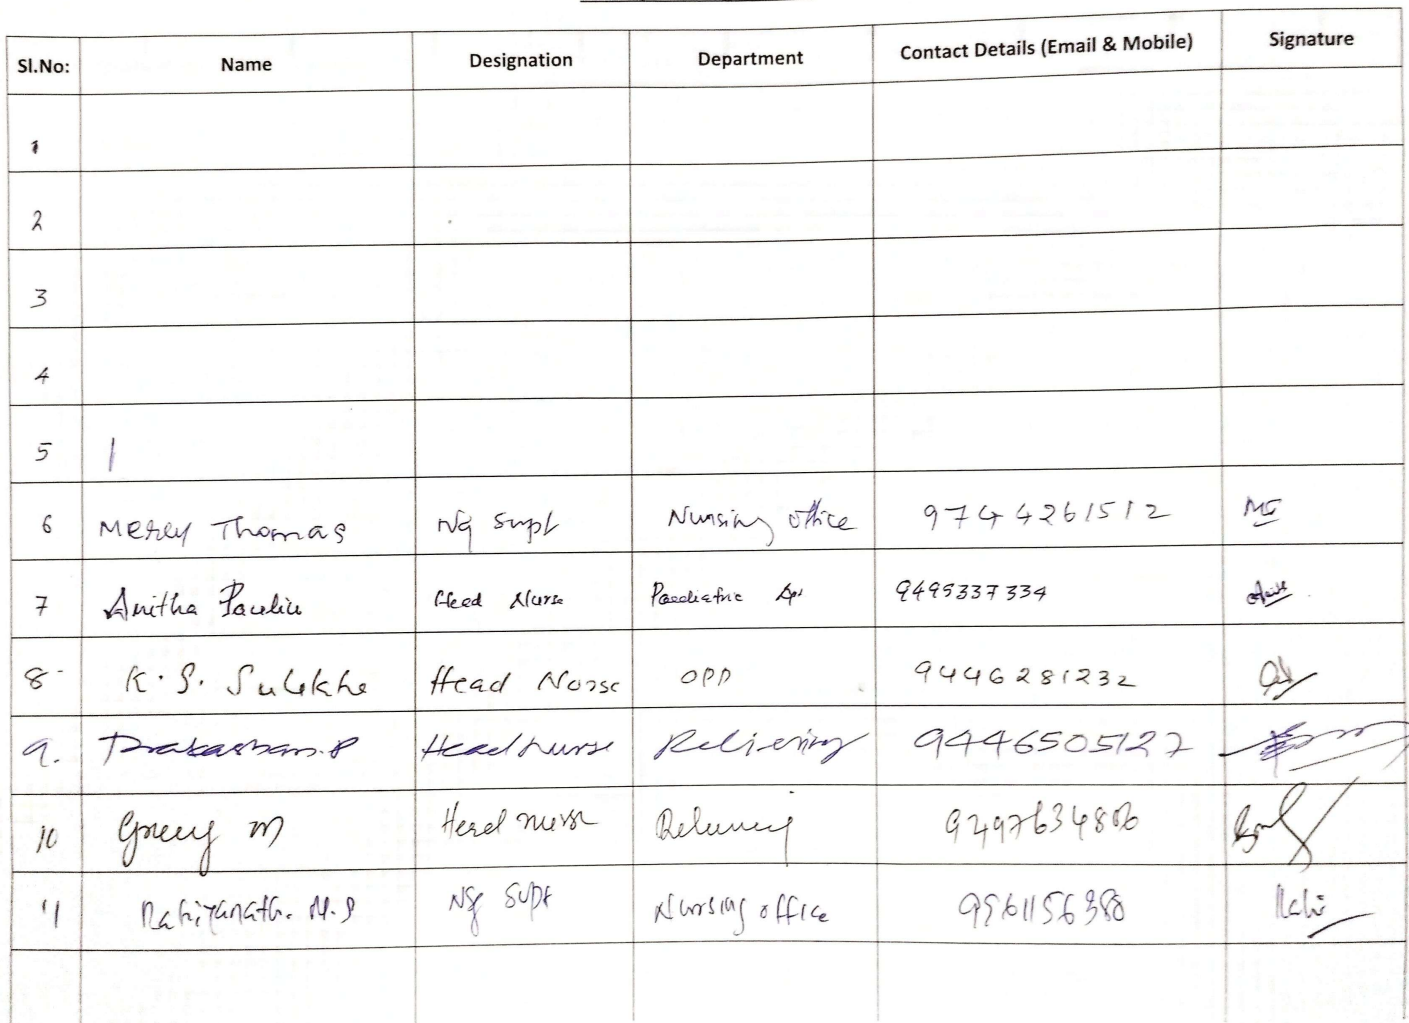 Sl.No: Name Designation Department Contact Details (Email & Mobile) Signature
1
2
3
4
5
6 Mercy Thomas Ng Supt Nursing office 9744261512
7 Anitha Paulin Head Nurse Paediatric 9495337334
8 K. S. Sulekha Head Nurse OPD 9446281232
9. Prakashan. P Head nurse Relieving 9446505127
10 Greey M Head nurse Relieving
11 M.S Ng Supt Nursing office